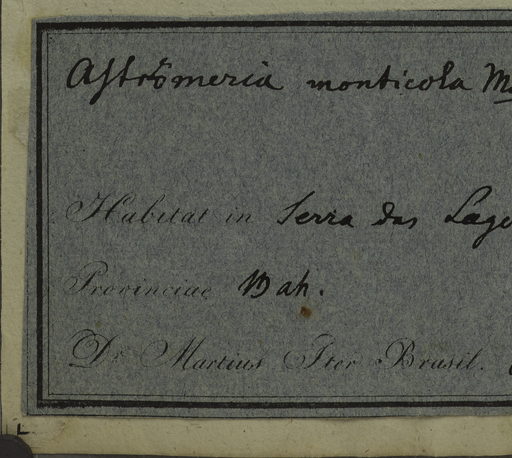 Alströmeria monticola M
Habitat in Serra das Lage
Provinciae Bah.
Dr. Martius Iter Brasil.